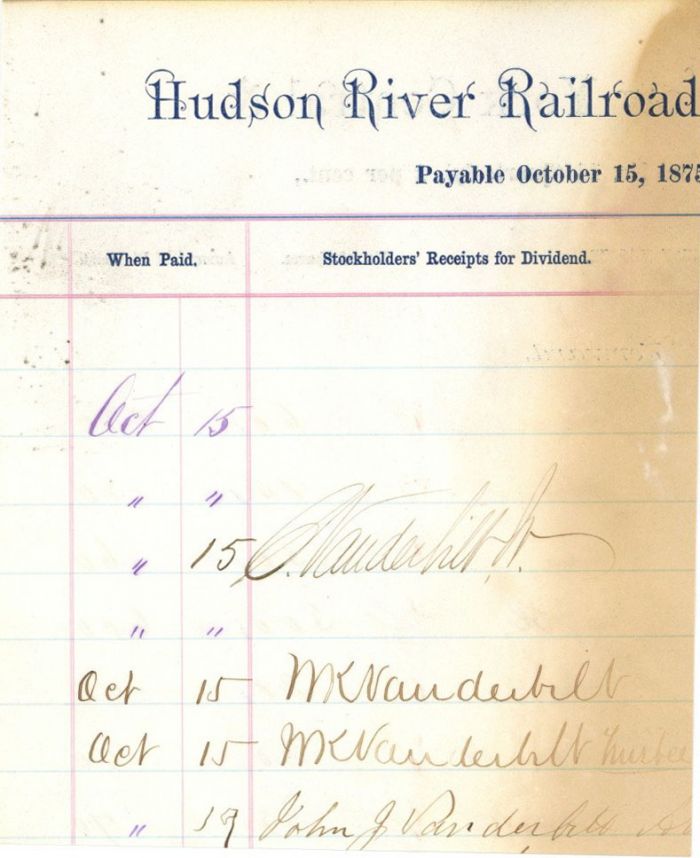 Hudson River Railroad
Payable October 15, 1875
When Paid. Stockholders' Receipts for Dividend.
Oct 15
" "
" 15 C. Vanderbilt, Jr.
" "
Oct 15 WKVanderbilt
Oct 15 WKVanderbilt Trustee
" 19 John J Vanderbilt